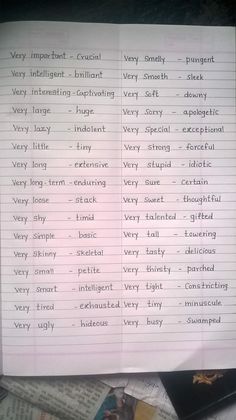 Very important - Crucial
Very intelligent - brilliant
Very interesting - Captivating
Very large - huge
Very lazy - indolent
Very little - tiny
Very long - extensive
Very long-term - enduring
Very loose - stack
Very shy - timid
Very simple - basic
Very skinny - skeletal
Very small - petite
Very smart - intelligent
Very tired - exhausted
Very ugly - hideous
Very Smelly - pungent
Very Smooth - sleek
Very Soft - downy
Very Sorry - apologetic
Very Special - exceptional
Very strong - forceful
Very stupid - idiotic
Very Sure - Certain
Very Sweet - thoughtful
Very talented - gifted
Very tall - towering
Very tasty - delicious
Very thirsty - parched
Very tight - Constricting
Very tiny - minuscule
Very busy - Swamped